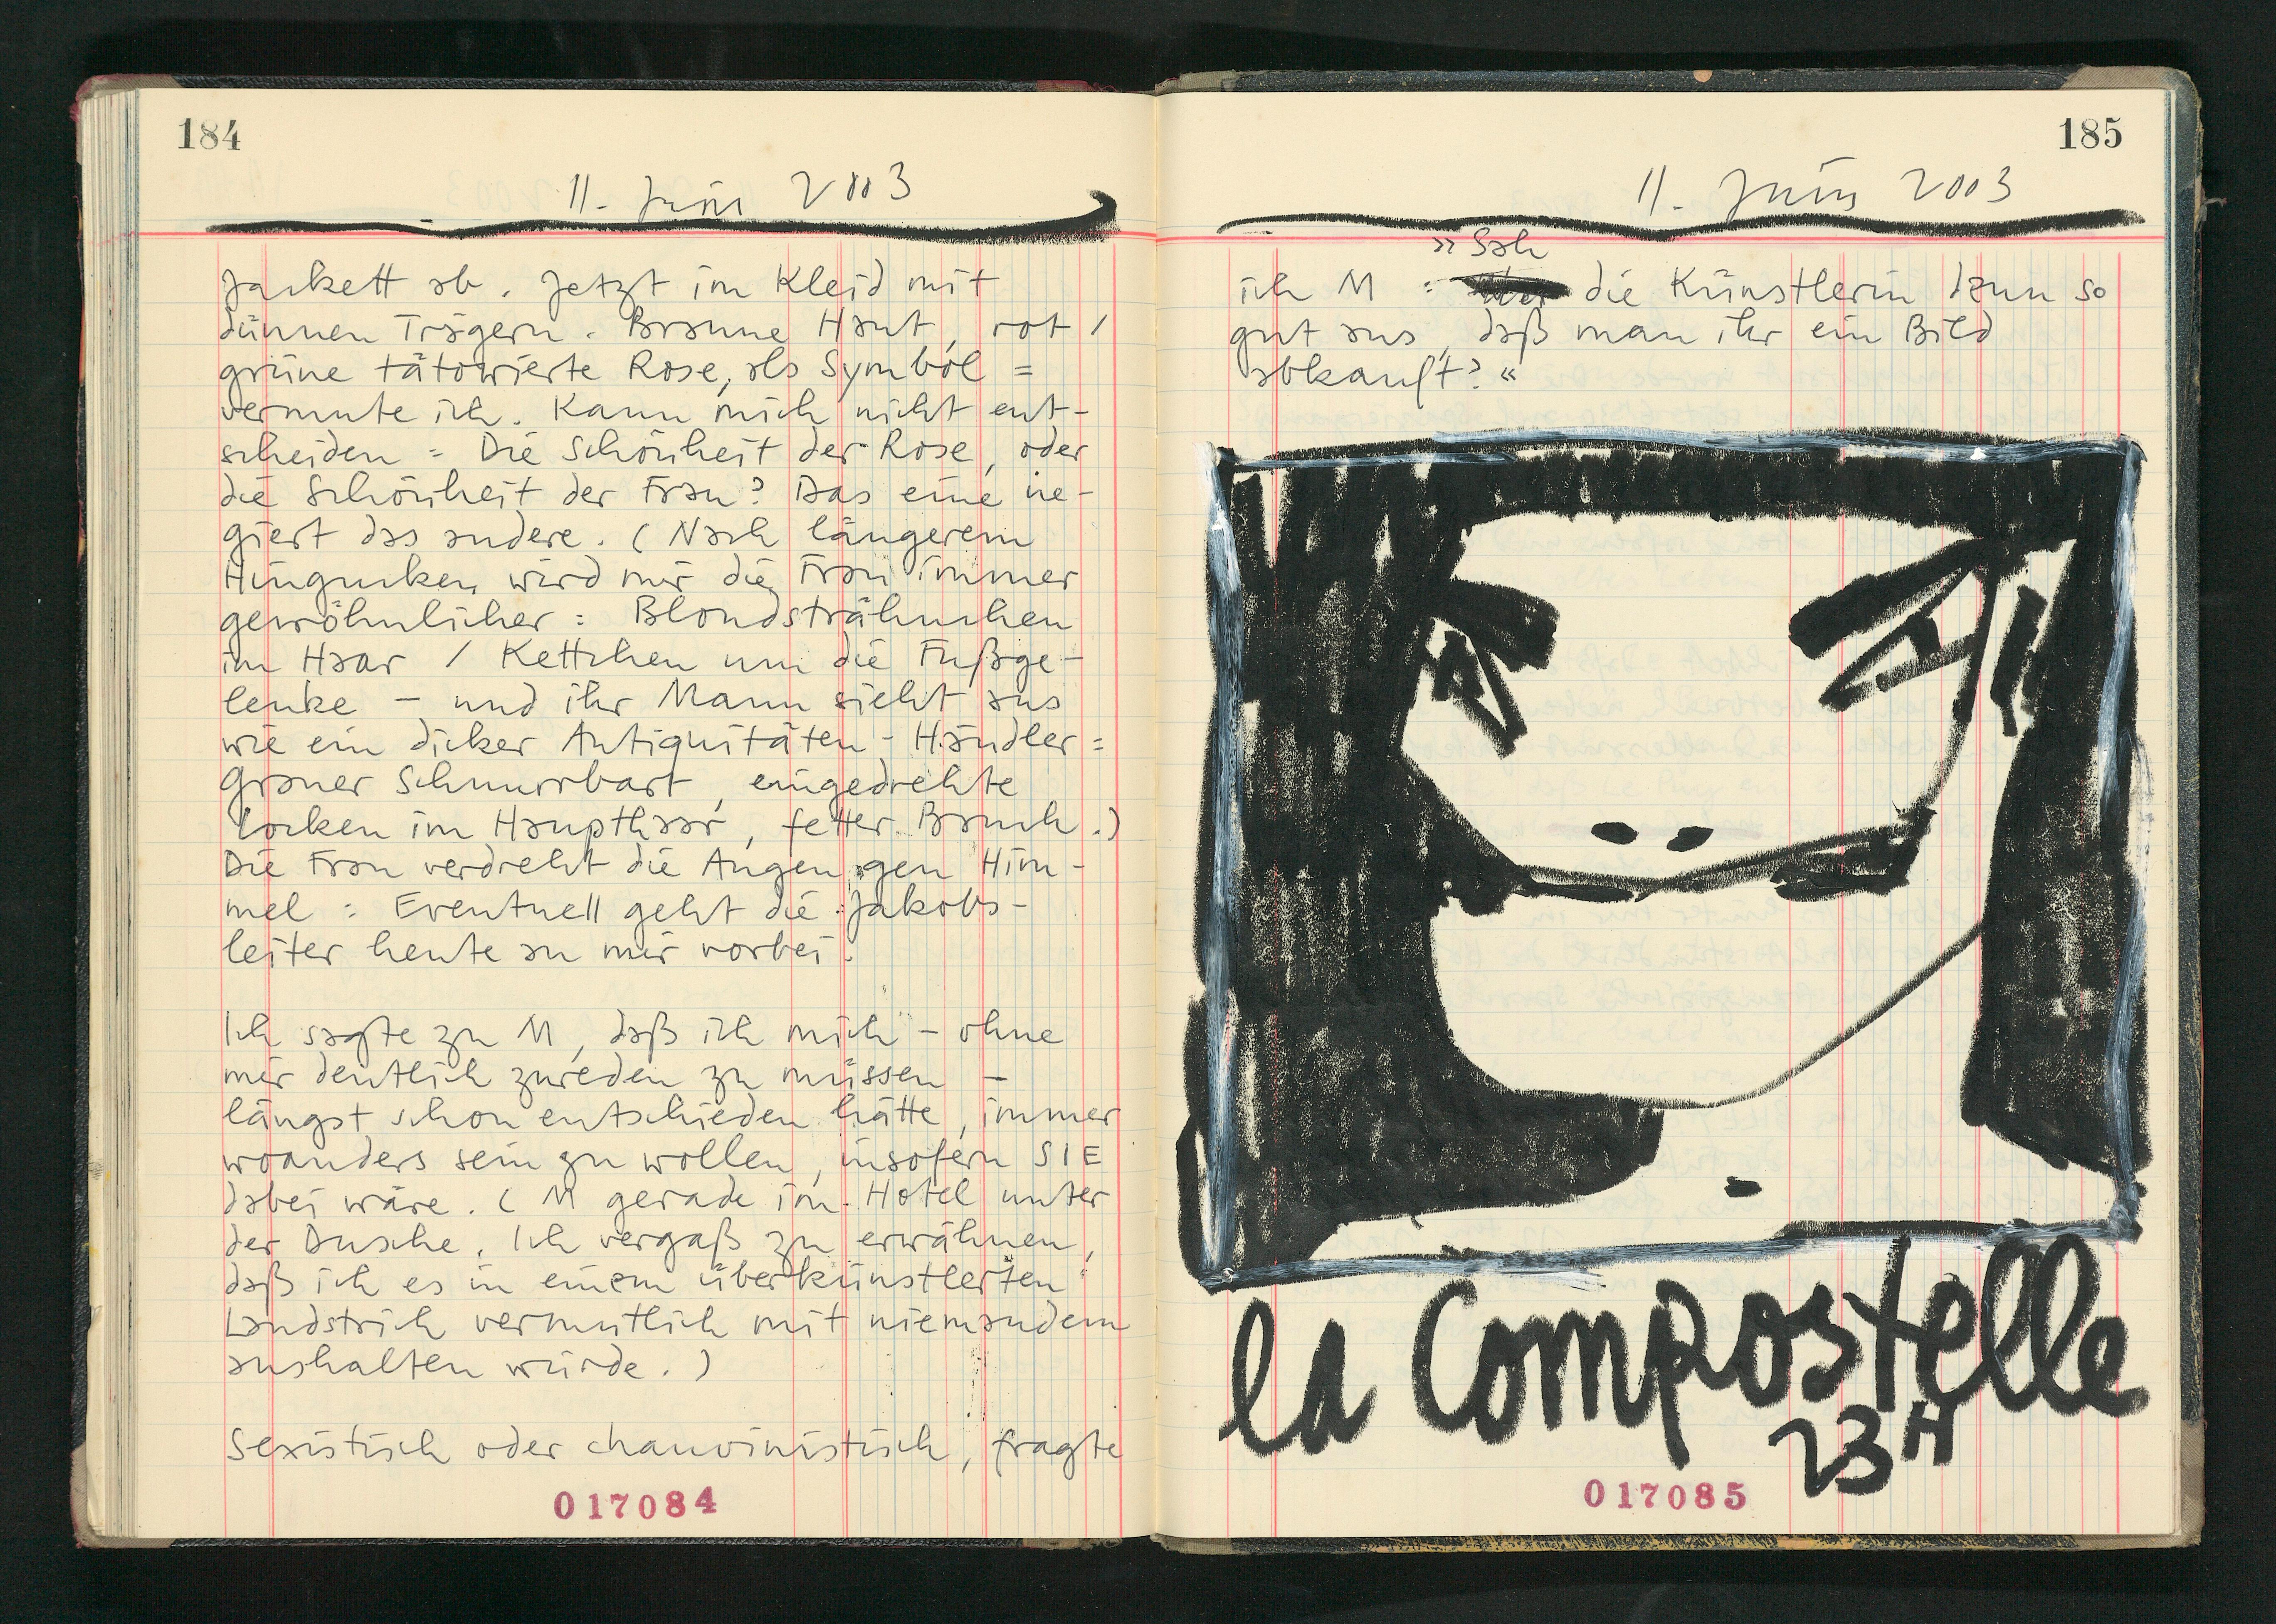 184
11. Juni 2003
Jackett ab. Jetzt im Kleid mit
dünnen Trägern. Braune Haut, rot /
grüne tätowierte Rose, als Symbol =
vermute ich. Kann mich nicht ent-
scheiden = Die Schönheit der Rose, oder
die Schönheit der Frau? Das eine ne-
giert das andere. (Nach längerem
Hingucken wird mir die Frau immer
gewöhnlicher: Blondsträhnchen
im Haar / Kettchen um die Fußge-
lenke – und ihr Mann sieht aus
wie ein dicker Antiquitäten-Händler =
Grauer Schnurrbart, eingedrehte
Locken im Haupthaar, fetter Bauch.)
Die Frau verdreht die Augen gen Him-
mel: Eventuell geht die Jakobs-
leiter heute an mir vorbei.
Ich sagte zu M, daß ich mich – ohne
mir deutlich zureden zu müssen –
längst schon entschieden hätte, immer
woanders sein zu wollen, insofern SIE
dabei wäre. (M gerade im Hotel unter
der Dusche. Ich vergaß zu erwähnen,
daß ich es in einem überkünstlerten
Landstrich vermutlich mit niemandem
aushalten würde.)
Sexistisch oder chauvinistisch, fragte
017084
185
11. Juni 2003
»Sah
ich M: die Künstlerin denn so
gut aus, daß man ihr ein Bild
abkauft?«
la Compostelle
23H
017085